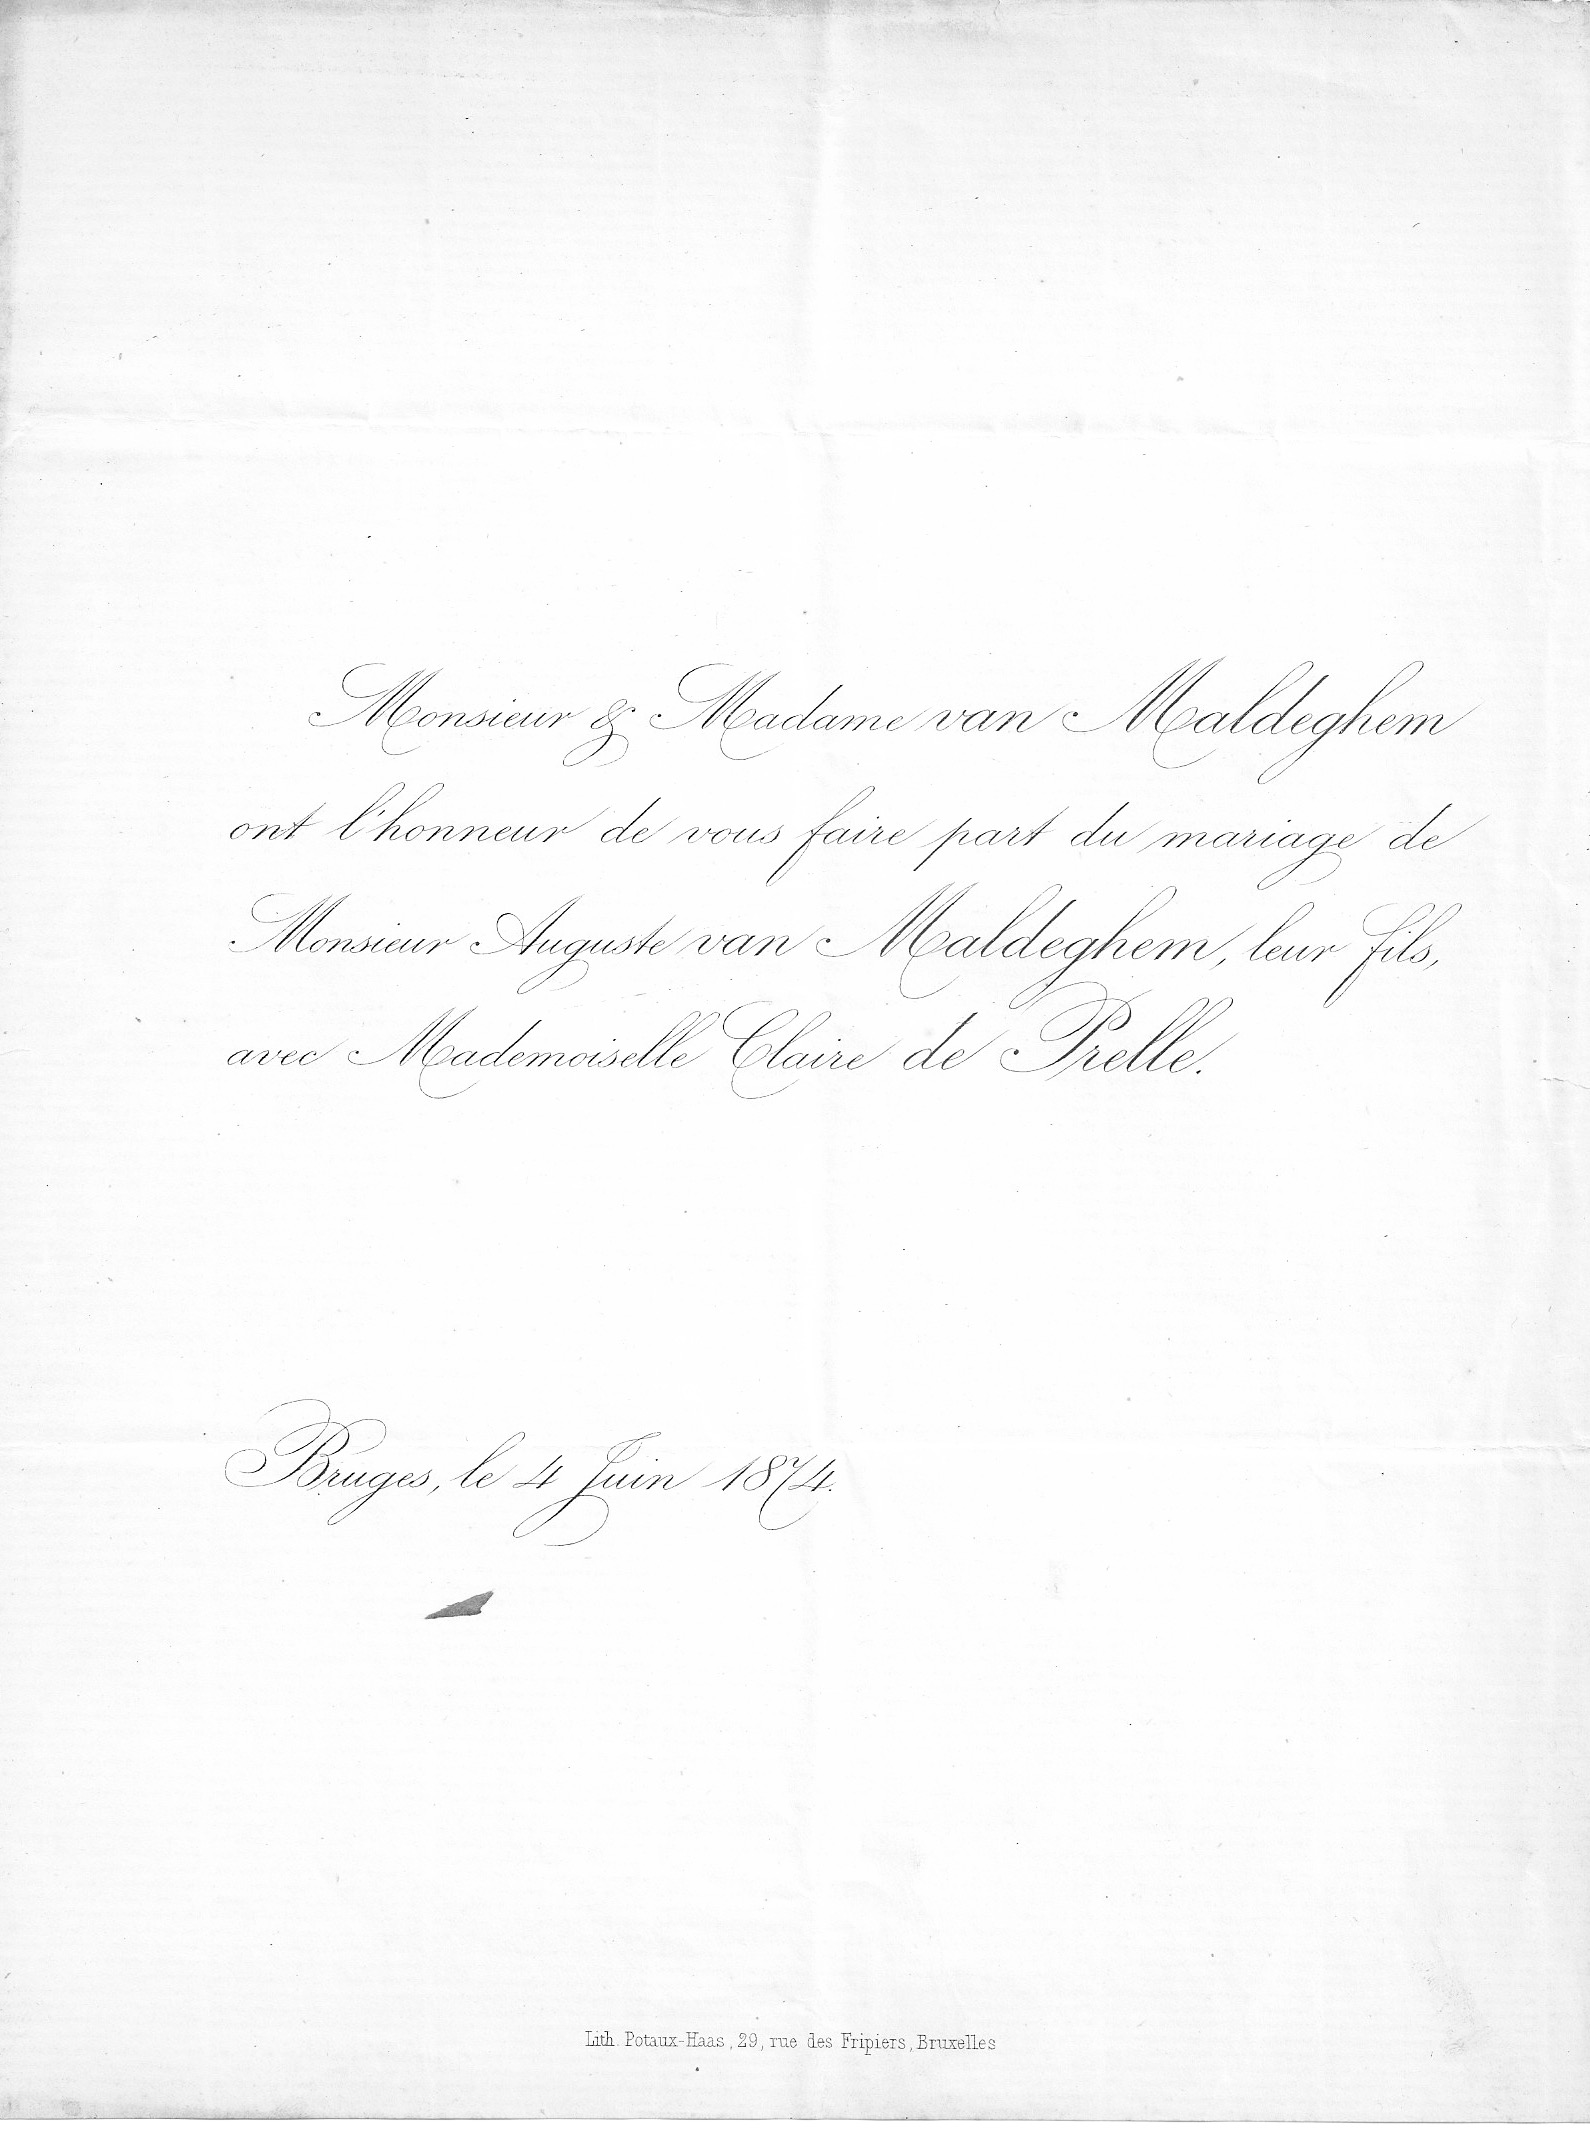 Monsieur & Madame van Maldeghem
ont l'honneur de vous faire part du mariage de
Monsieur Auguste van Maldeghem, leur fils,
avec Mademoiselle Claire de Prelle.
Bruges, le 4 Juin 1874.
Lith. Potaux-Haas, 29, rue des Fripiers, Bruxelles